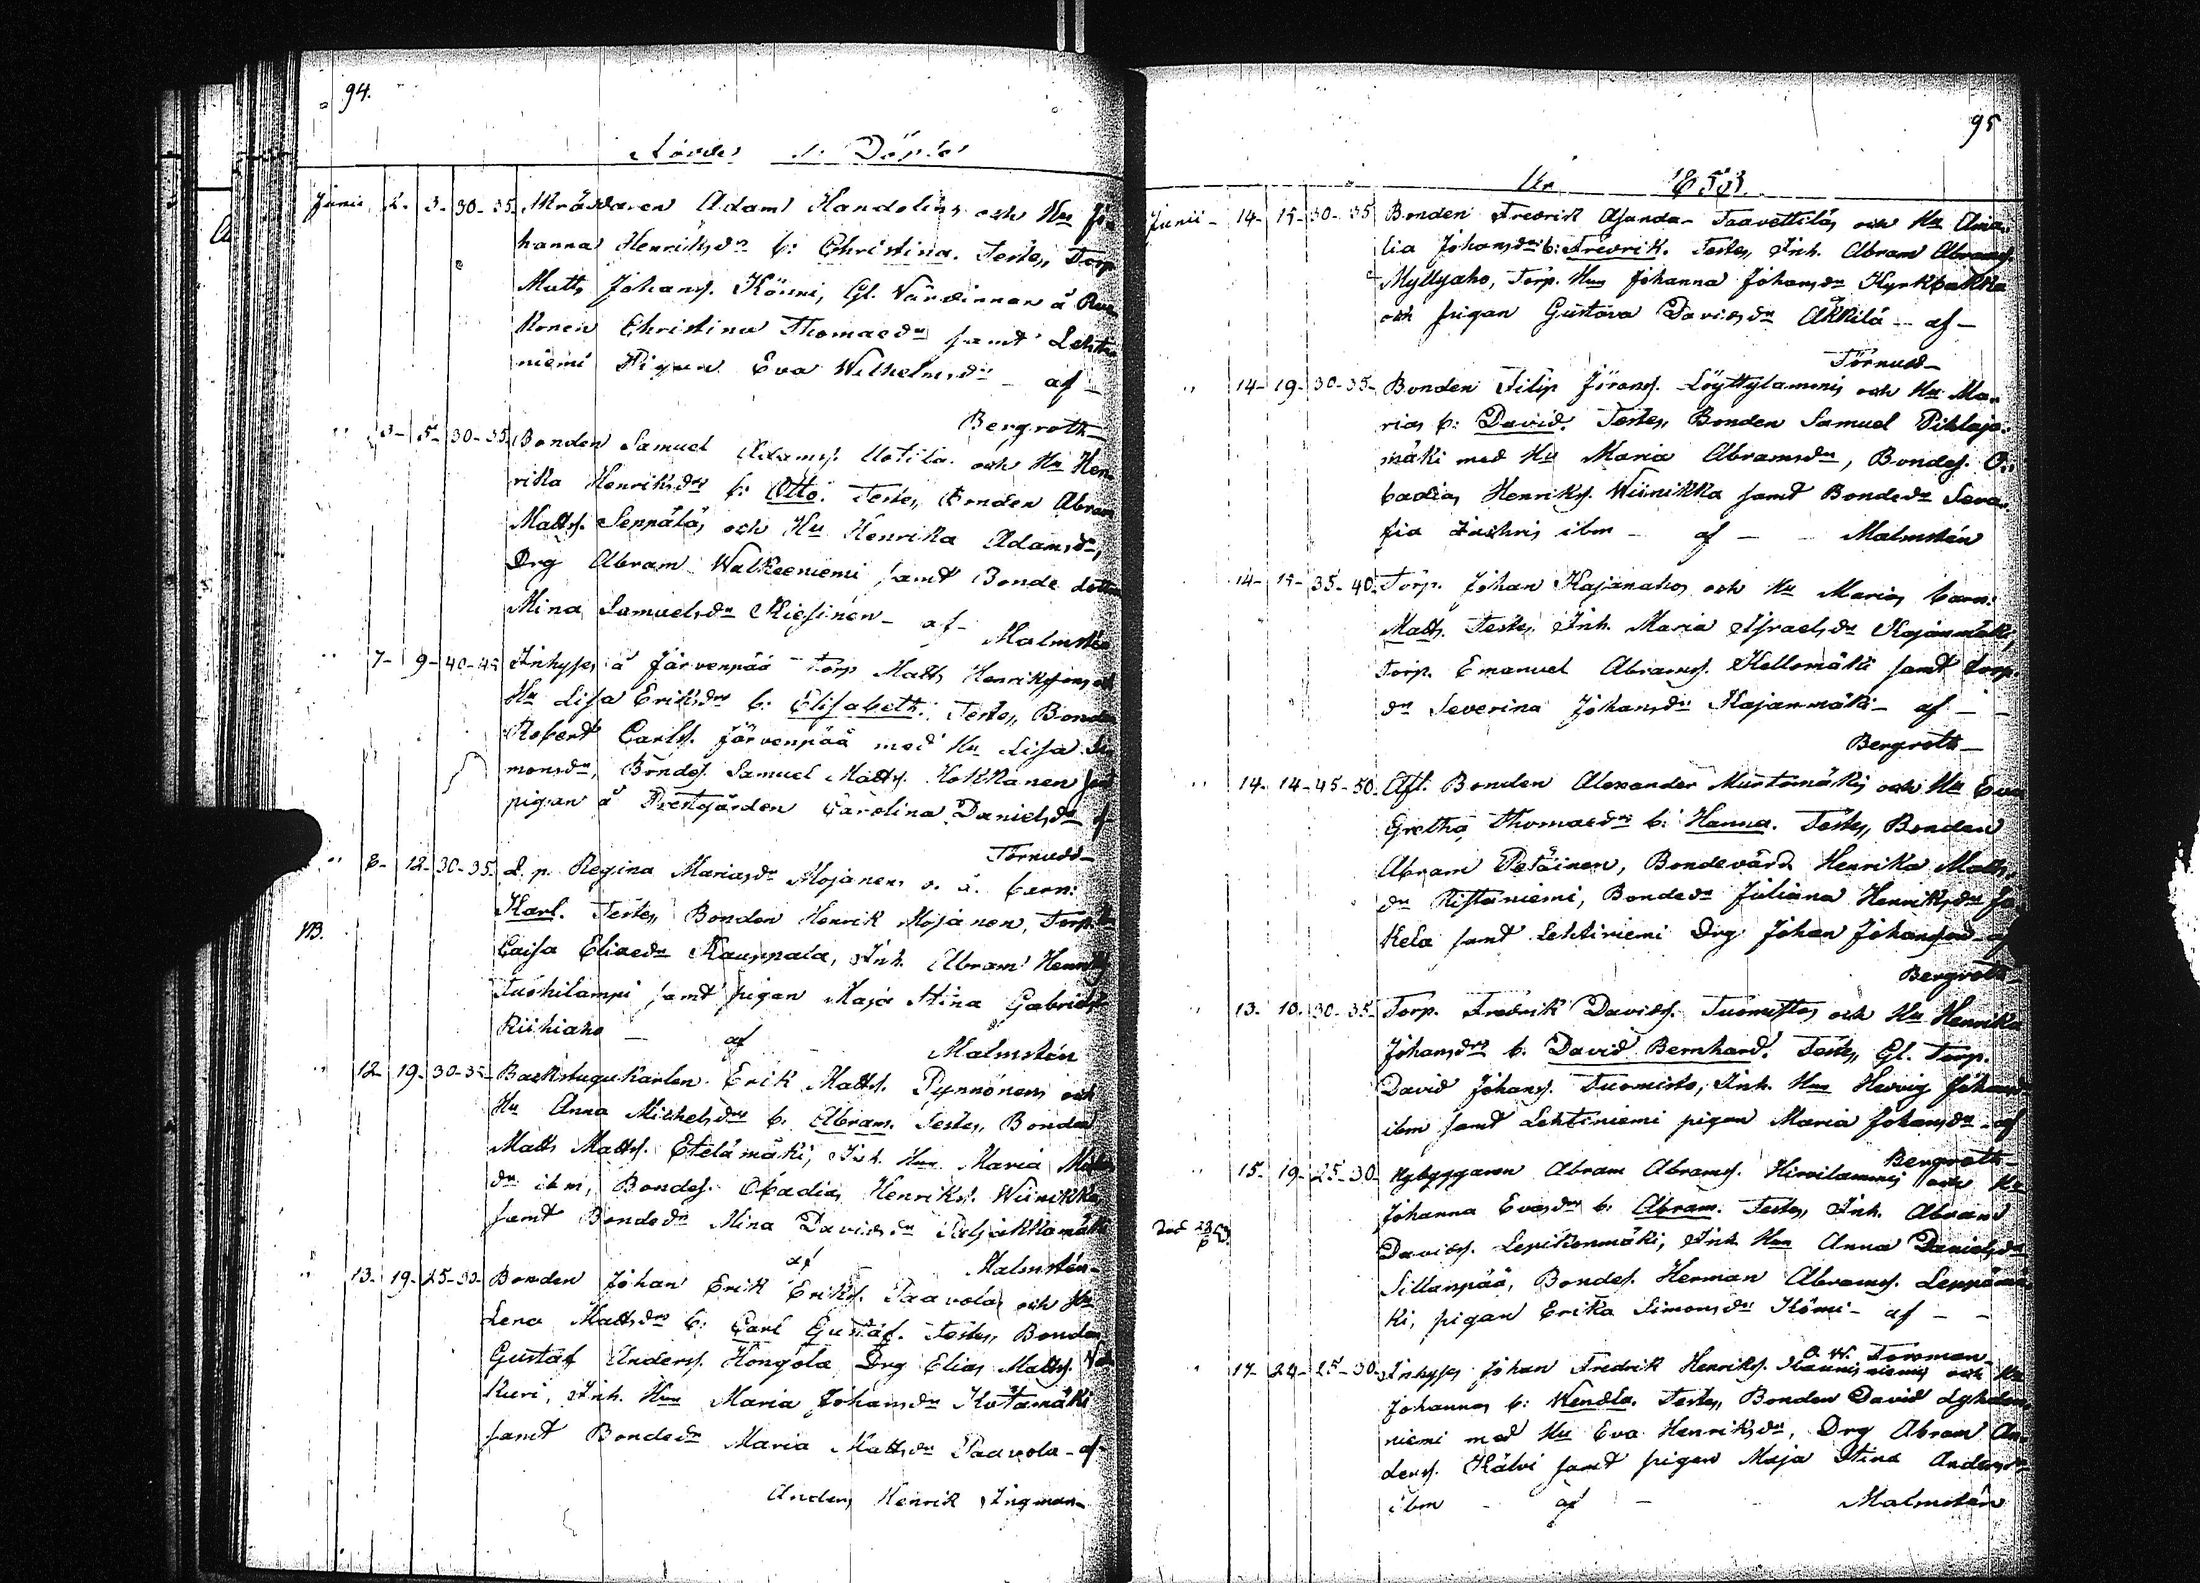 94.
Födde & Döpte
Junii 2. 3. 30-35. Skräddaren Adam Handolin, och Hu Jo-
hanna Henriksdr b: Christina. Testes, Torp
Matts Johans. Könni, Gl. Värdinnan å
konen Christina Thomasdr samt Lehto
niemi Pigan Eva Wilhelmsdr - af -
Bergroth -
" 3- 5- 30-35 Bonden Samuel Adams. Uotila och Hu Hen-
rika Henriksdr b: Otto. Testes, Bonden Abram
Matts. Seppälä, och Hu Henrika Adamsdr,
Drg Abram Walkeeniemi samt Bonde dottern
Mina Samuelsdr Kiesinen - af -
Malmstén
" 7- 9- 40-45 Inhyses å Järvenpää Torp Matts Henriksson, och
Hu Lisa Eriksdr b: Elisabeth. Testes, Bonden
Robert Carls. Järvenpää med Hu Lisa Si-
monsdr, Bondes. Samuel Matts. Kokkanen samt
pigan å Prestgården Carolina Danielsdr af
Törnudd -
" 8- 12- 30-35. L. p. Regina Mariasdr Mojanens o. ä. barn:
NB. Karl. Testes, Bonden Henrik Mojanen, Torp. Hu
Caisa Eliaedr Kauppala, Inh. Abram Henriks
Tuohilampi samt pigan Maja Stina Gabrielsdr
Riihiaho - af - Malmstén
" 12- 19- 30-35- Backstugukarlen Erik Matts. Pynnönens och
Hu Anna Michelsdr b: Abram. Testes, Bonden
Matts Matts. Etelämäki, Inh. Hun Maria
dr ibm, Bondes. Obadias Henriks. Wiinikka
samt Bondedr Mina Davidsdr
af - Malmstén -
" 13- 19- 25-30- Bonden Johan Erik Eriks. Paavola, och Hu
Lena Mattsdr b: Carl Gustaf. Testes, Bonden
Gustaf Anders. Hongola Drg Elias Matts.
kuri, Inh. Hun Maria Johansdr Kotamäki
samt Bondedr Maria Mattsdr Paavola - af -
Anders Henrik Ingman -
95
År 1853.
Junii - 14- 15- 30-35 Bonden Fredrik Ajanda- Taavettilä, och Hu Ama-
lia Johansdr b: Fredrik. Testes, Inh. Abram Abrams.
Myllyaho, Torp. Hun Johanna Johansdr Kyrkbakka
och pigan Gustava Davidsdr Äkkilä - af -
Törnudd -
" 14- 19- 30-35- Bonden Filip Jörans. Löyttylammi, och Hu Ma-
rias b: David. Testes, Bonden Samuel Pihlaja-
mäki med Hu Maria Abramsdr, Bondes. O-
badias Henriks. Wiinikka samt Bondedr Sera-
fia ibm - af - Malmstén
14- 15- 35-40. Torp. Johan Kajanahos och Hu Marias barn:
Matts. Testes, Inh. Maria Israelsdr Kajanmäki,
Torp. Emanuel Abrams. Kellomäki samt torp.
dr Severina Johansdr Kajanmäki - af -
Bergroth -
" 14- 14- 45-50. Afl. Bonden Alexander Murtomäki, och Hu Eva
Gretha Thomasdr b: Hanna. Testes, Bonden
Abram Petäinen, Bondevärd. Henrika Matts-
dr Ristaniemi, Bondedr Juliana Henriksdr
kela samt Lehtiniemi Drg Johan Johansson af
Bergroth -
" 13- 10. 30-35- Torp. Fredrik Davids. Tuomistos och Hu Henrika
Johansdr b: David Bernhard. Testes, Gl. Torp.
David Johans. Tuomisto, Inh. Hun Hedvig Johansdr
ibm samt Lehtiniemi pigan Maria Johansdr af
Bergroth -
" 15- 19- 25-30- Nybyggaren Abram Abrams. Hirvilammi, och Hu
Johanna Evasdr b: Abram. Testes, Inh. Abram
Död 28/6 53 Davids. Lepikonmäki, Inh Hun Anna Danielsdr
Sillanpää, Bondes. Herman Abrams. Leppämä-
ki, pigan Erika Simonsdr Kömi - af -
O. W. Forsman -
" 17- 24- 25-30- Inhyses Johan Fredrik Henriks. och Hu
Johannas b: Wendla. Testes, Bonden David
niemi med Hu Eva Henriksdr, Drg Abram An-
ders. Kälvi samt pigan Maja Stina Andersdr
ibm - af - Malmstén